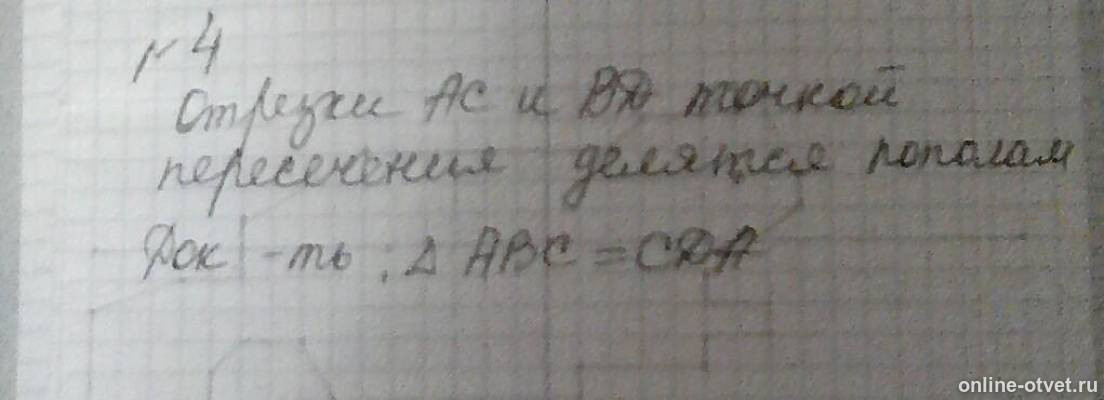 №4
Отрезки АС и ВД точкой
пересечения делятся пополам
Док-ть: Δ АВС = СДА
online-otvet.ru